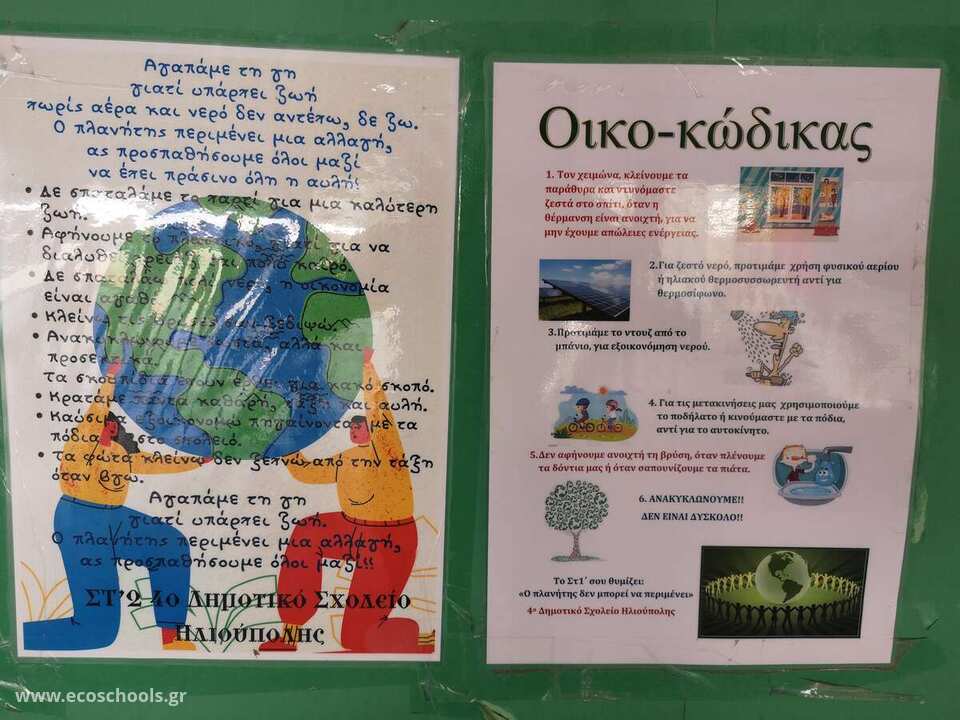 Αγαπάμε τη γη
γιατί υπάρπει ζωή
πωρίς αέρα και νερό δεν αντέπω, δε ζω.
Ο πλανήτης περιμένει μια αλλαγή,
ας προσπαθήσουμε όλοι μαζί
να έπει πράσινο όλη η αυλή!
• Δε σπαταλάμε το παρτί για μια καλύτερη
ζωή.
• Αφήνουμε το πλαστικό, γιατί για να
διαλυθεί πολύ καιρό.
• Δε νερό, η οικονομία
είναι
• Κλείνω τις βρύσες
• σωστά, αλλά και
προσεκτικά.
τα σκουπίδια έπουν έρθει για κακό σκοπό.
• Κρατάμε πάντα καθαρή, τάξη και αυλή.
• Καύσιμα εξοικονομώ πηγαίνοντας με τα
πόδια στο σπολειό.
• τα φώτα κλείνω δεν ξεπνώ, από την τάξη
όταν βγω.
Αγαπάμε τη γη
γιατί υπάρπει ζωή.
Ο πλανήτης περιμένει μια αλλαγή,
ας προσπαθήσουμε όλοι μαζί!!
ΣΤ'2 4ο Δημοτικό Σχολείο
Ηλιούπολης
Οικο-κώδικας
1. Τον χειμώνα, κλείνουμε τα
παράθυρα και ντυνόμαστε
ζεστά στο σπίτι, όταν η
θέρμανση είναι ανοιχτή, για να
μην έχουμε απώλειες ενέργειας.
2.Για ζεστό νερό, προτιμάμε χρήση φυσικού αερίου
ή ηλιακού θερμοσυσσωρευτή αντί για
θερμοσίφωνο.
3.Προτιμάμε το ντουζ από το
μπάνιο, για εξοικονόμηση νερού.
4. Για τις μετακινήσεις μας χρησιμοποιούμε
το ποδήλατο ή κινούμαστε με τα πόδια,
αντί για το αυτοκίνητο.
5.Δεν αφήνουμε ανοιχτή τη βρύση, όταν πλένουμε
τα δόντια μας ή όταν σαπουνίζουμε τα πιάτα.
6. ΑΝΑΚΥΚΛΩΝΟΥΜΕ!!
ΔΕΝ ΕΙΝΑΙ ΔΥΣΚΟΛΟ!!
Το Στ1΄ σου θυμίζει:
«Ο πλανήτης δεν μπορεί να περιμένει»
4ο Δημοτικό Σχολείο Ηλιούπολης
www.ecoschools.gr